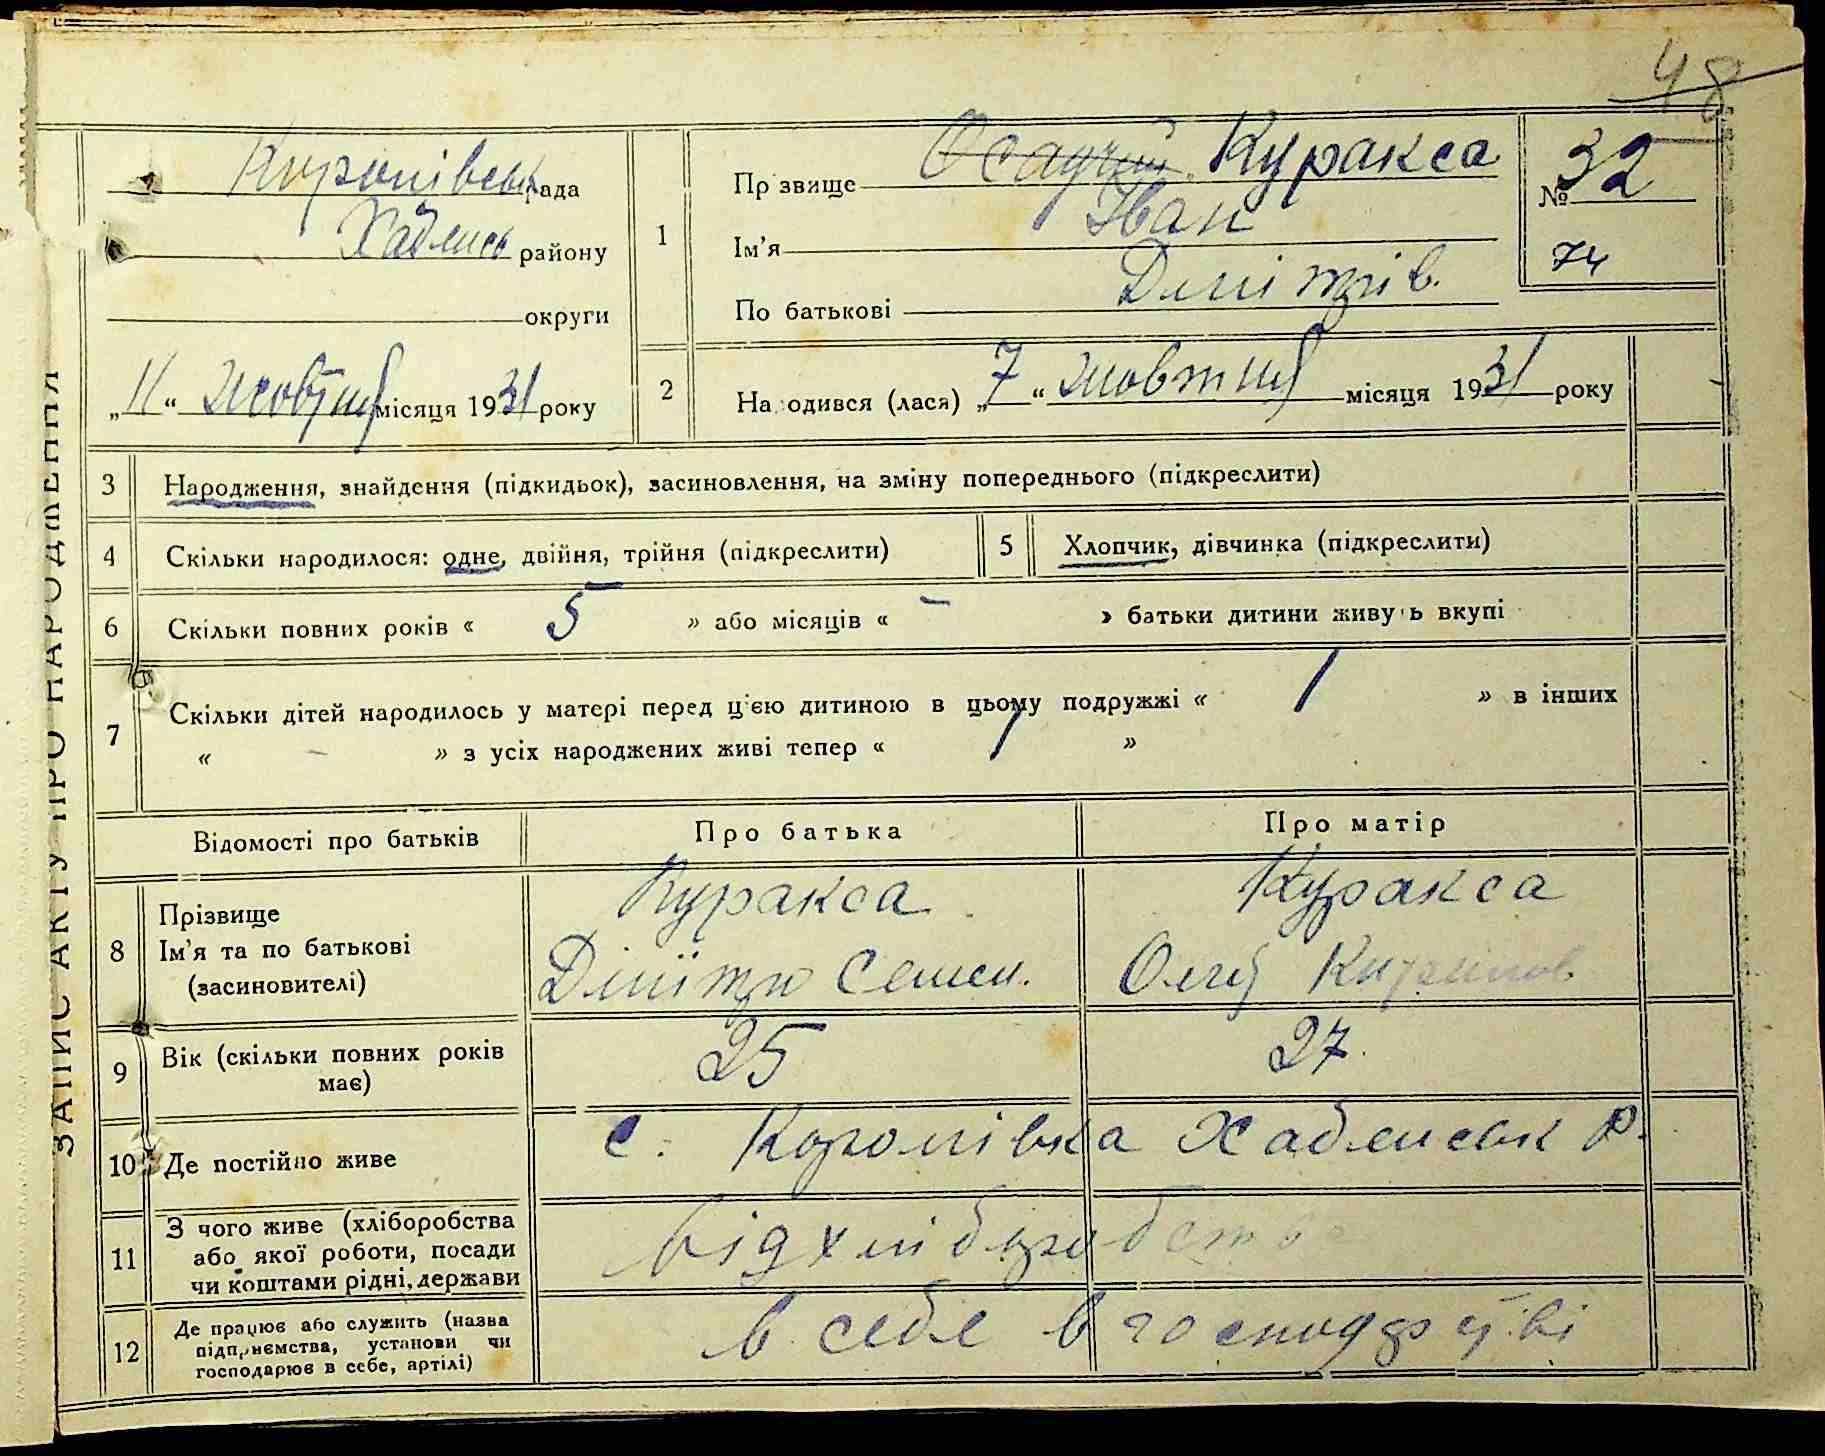 48
ЗАПИС АКТУ ПРО НАРОДЖЕННЯ
рада
Хабенсь району
округи
„11“ жовтня місяця 1931 року
1
Прізвище Осадчий Куракса
Ім’я Іван
По батькові Дмітрів.
№ 32
74
2
Народився (лася) „7“ жовтня місяця 1931 року
3 Народження, знайдення (підкидьок), засиновлення, на зміну попереднього (підкреслити)
4 Скільки народилося: одне, двійня, трійня (підкреслити)
5 Хлопчик, дівчинка (підкреслити)
6 Скільки повних років « 5 » або місяців « – » батьки дитини живуть вкупі
7 Скільки дітей народилось у матері перед цією дитиною в цьому подружжі « 1 » в інших
« – » з усіх народжених живі тепер « 1 »
Відомості про батьків Про батька Про матір
8 Прізвище Куракса Куракса
Ім’я та по батькові Дмітро Семен. Ольга
(засиновителі)
9 Вік (скільки повних років 25 27.
має)
10 Де постійно живе с. р.
11 З чого живе (хліборобства
або якої роботи, посади від хліборобства
чи коштами рідні, держави
12 Де працює або служить (назва
підприємства, установи чи в себе в господарстві
господарює в себе, артілі)